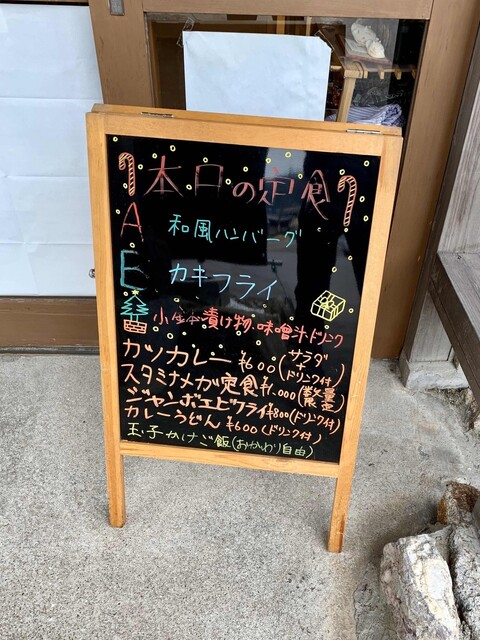 本日の定食
A 和風ハンバーグ
B カキフライ
小鉢漬け物、味噌汁、ドリンク
カツカレー ¥600(サラダ+ドリンク付)
スタミナメガ定食 ¥1,000(数量限定)
ジャンボエビフライ ¥800(ドリンク付)
カレーうどん ¥600(ドリンク付)
玉子かけご飯(おかわり自由)